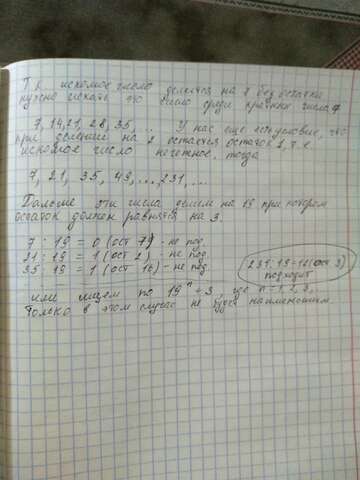 Т.к искомое число делится на 7 без остатка
нужно искать это число среди кратных числа 7
7, 14, 21, 28, 35, ... У нас еще есть условие, что
при делении на 2 остается остаток 1, т.е.
искомое число нечетное, тогда
7, 21, 35, 49, ..., 231, ...
Дальше эти числа делим на 19 при котором
остаток должен равняться на 3.
7 : 19 = 0 (ост 7) - не под.
21 : 19 = 1 (ост 2) - не под.
35 : 19 = 1 (ост 16) - не под.
231 : 19 = 12 (ост 3)
подходит
или ищем по 19ⁿ + 3, где n = 1, 2, 3,
только в этом случае не будет наименьшим